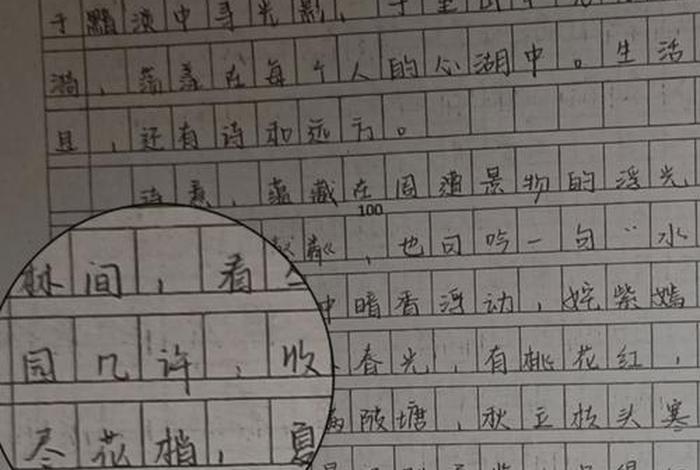 于黯淡中寻光影，于
漪，荡漾在每个人的心湖中。生活
且，还有诗和远方。
诗意，蕴藏在周遭景物的浮光
100
，也曰吟一句“水
中暗香浮动，姹紫嫣
春光，有桃花红，
满陂塘，秋立枝头寒
林间，看
园几许，收
尽花梢，夏